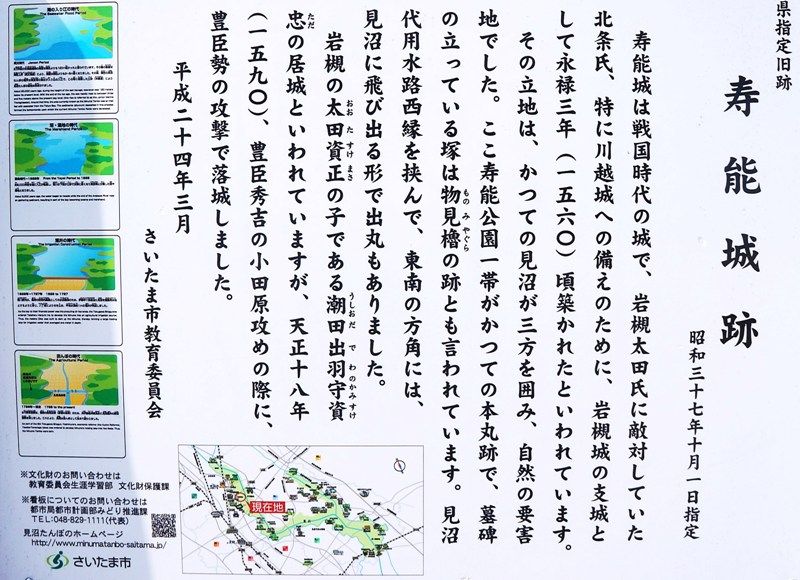 県指定旧跡
寿能城跡
昭和三十七年十月一日指定
寿能城は戦国時代の城で、岩槻太田氏に敵対していた
北条氏、特に川越城への備えのために、岩槻城の支城と
して永禄三年(一五六〇)頃築かれたといわれています。
その立地は、かつての見沼が三方を囲み、自然の要害
地でした。ここ寿能公園一帯がかつての本丸跡で、墓碑
の立っている塚は物見櫓の跡とも言われています。見沼
ものみやぐら
代用水路西縁を挟んで、東南の方角には、
見沼に飛び出る形で出丸もありました。
岩槻の太田資正の子である潮田出羽守資
おおたすけまさ
うしおだでわのかみすけ
忠の居城といわれていますが、天正十八年
ただ
(一五九〇)、豊臣秀吉の小田原攻めの際に、
豊臣勢の攻撃で落城しました。
平成二十四年三月
さいたま市教育委員会
海の入り江の時代
The Seawater Flood Period
The Marshland Period
The Irrigation Construction Period
田んぼの時代
The Agricultural Period
現在地
※文化財のお問い合わせは
教育委員会生涯学習部 文化財保護課
※看板についてのお問い合わせは
都市局都市計画部みどり推進課
TEL:048-829-1111(代表)
見沼たんぼのホームページ
http://www.minumatanbo-saitama.jp/
さいたま市